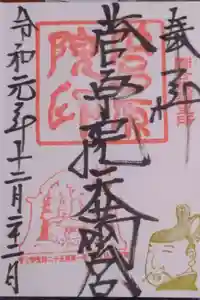 奉拝
菅原院天満宮
令和元年十二月二十二日
菅原院印